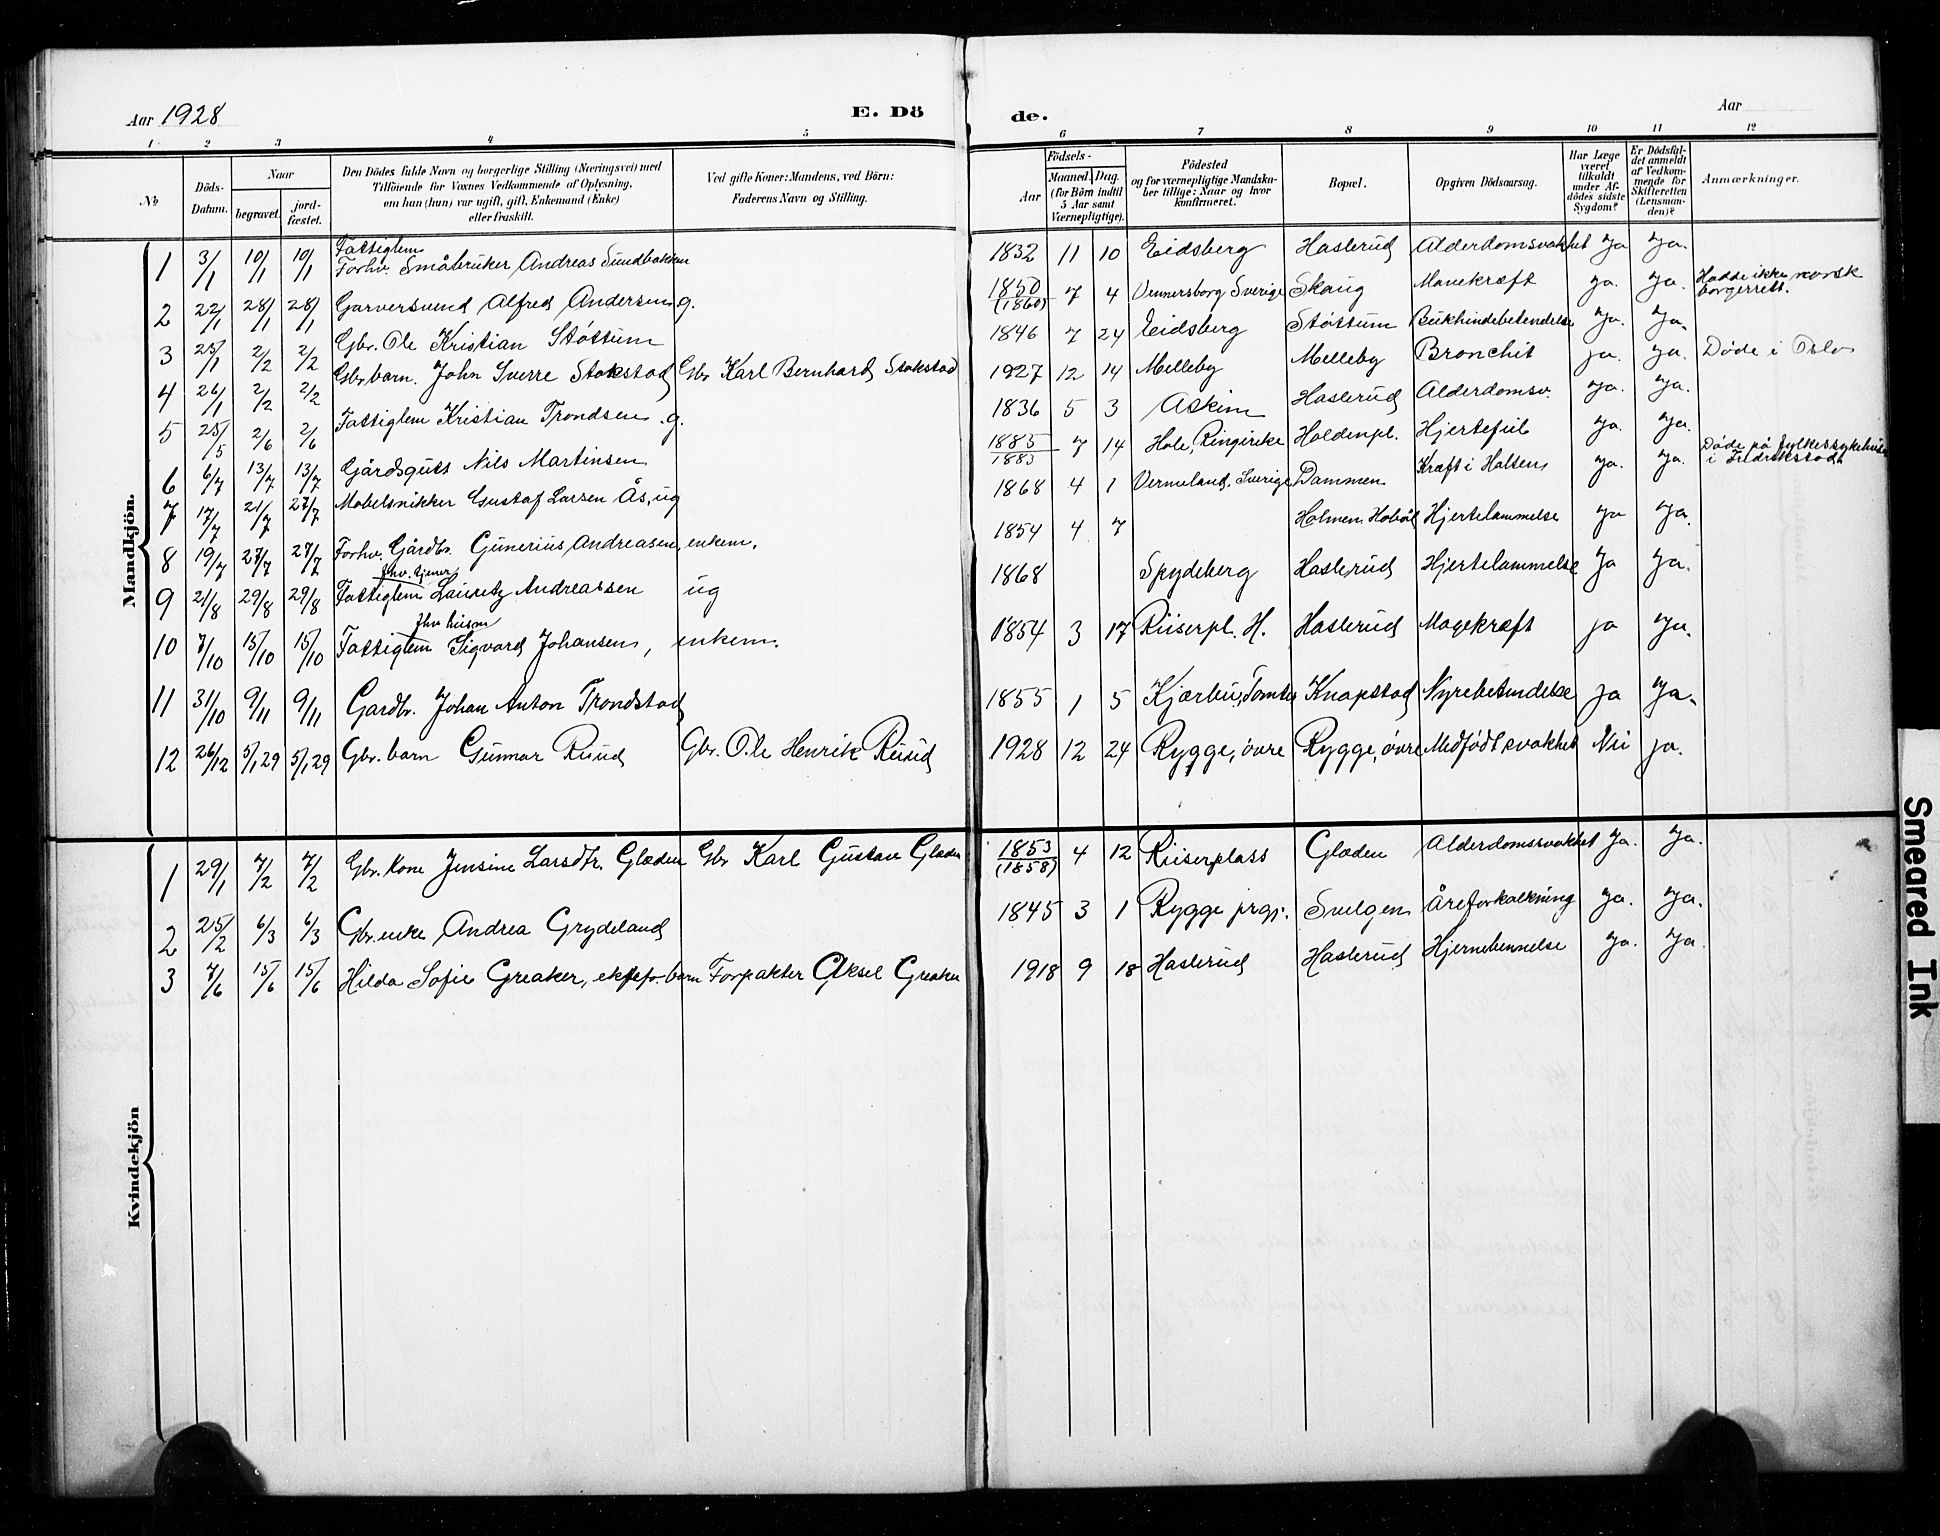 Aar 1928 E. Dö de. Aar
1 2 3 4 5 6 7 8 9 10 11 12
№
Döds-Datum.
Naar
begravet.
jord-fæstet.
Den Dödes fulde Navn og borgerlige Stilling (Næringsvei) med
Tilföiende for Voxnes Vedkommende af Oplysning,
om han (hun) var ugift, gift, Enkemand (Enke)
eller fraskilt.
Ved gifte Koner: Mandens, ved Börn:
Faderens Navn og Stilling.
Födsels-
Aar
Maaned. Dag.
(for Börn indtil
5 Aar samt
Værnepligtige).
Födested
og for værnepligtige Mandska-
ber tillige: Naar og hvor
konfirmeret.
Bopæl.
Opgiven Dödsaarsag.
Har Læge
været
tilkaldt
under Af-
dödes sidste
Sygdom?
Er Dödsfal-
det anmeldt
af Vedkom-
mende for
Skifteretten
(Lensman-
den)?
Anmærkninger.
Mandkjön.
1 3/1 10/1 10/1 Fattiglem Forhv. Småbruker Andreas Sundbakken 1832 11 10 Eidsberg Haslerud Alderdomsvakhet Ja Ja.
2 22/1 28/1 28/1 Garversvend Alfred Andersen g. 1850 (1860) 7 4 Vennersborg Sverige Skaug Mavekræft ja. ja. Hadde ikke norsk borgerrett.
3 25/1 2/2 2/2 Gbr. Ole Kristian Støttum 1846 7 24 Eidsberg Støttum Bukhindebetendelse Ja. Ja.
4 26/1 2/2 2/2 Gbr barn. John Sverre Stokstad Gbr Karl Bernhard Stokstad 1927 12 14 Melleby Melleby Bronchit ja. ja. Døde i Oslo
5 25/5 2/6 2/6 Fattiglem Kristian Trondsen .g. 1836 5 3 Askim Haslerud Alderdomsv. ja. Ja.
6 6/7 13/7 13/7 Gårdsgutt Nils Martinsen 1885 1883 7 14 Hole, Ringirike Holdenpl. Hjertefeil Ja. Ja. Døde på fylkessykehuset i Fredrikstad
7 17/7 21/7 21/7 Møbelsnikker Gustaf Larsen Ås, ug 1868 4 1 Vermeland, Sverige Dammen Kræft i Halsen Ja. Ja.
8 19/7 27/7 27/7 Forhv. Gårdbr. Gunerius Andreasen, enkem. 1854 4 7 Holmen Hobøl Hjertelammelse ja Ja.
9 21/8 29/8 29/8 Fattiglem fhv. tjener Lauretz Andreassen ug 1868 Spydeberg Haslerud Hjertelammelse Ja Ja.
10 7/10 15/10 15/10 Fattiglem fhv husm Sigvard Johansen, enkem. 1854 3 17 Riiserpl. H. Haslerud Magekræft ja Ja.
11 31/10 9/11 9/11 Gardbr. Johan Anton Trondstad 1855 1 5 Kjærbu, Tomter Knapstad Nyrebetendelse ja Ja.
12 26/12 5/1 29 5/1 29 Gbr. barn Gunnar Ruud Gbr. Ole Henrik Ruud 1928 12 24 Rygge, øvre Rygge, øvre Medfødt svakhet Nei ja.
Kvindekjön
1 29/1 7/2 7/2 Gbr. kone Jensine Larsdtr. Glæden Gbr Karl Gustav Glæden 1853 (1858) 4 12 Riiserplass Glæden Alderdomssvakhet Ja. Ja.
2 25/2 6/3 6/3 Gbr. enke Andrea Grydeland 1845 3 1 Rygge prgj. Svelgen Åreforkalkning Ja. Ja.
3 7/6 15/6 15/6 Hilda Sofie Greaker, ektef. barn Forpakter Aksel Greaker 1918 9 18 Haslerud Haslerud Hjernebennelse Ja. Ja.
Smeared Ink